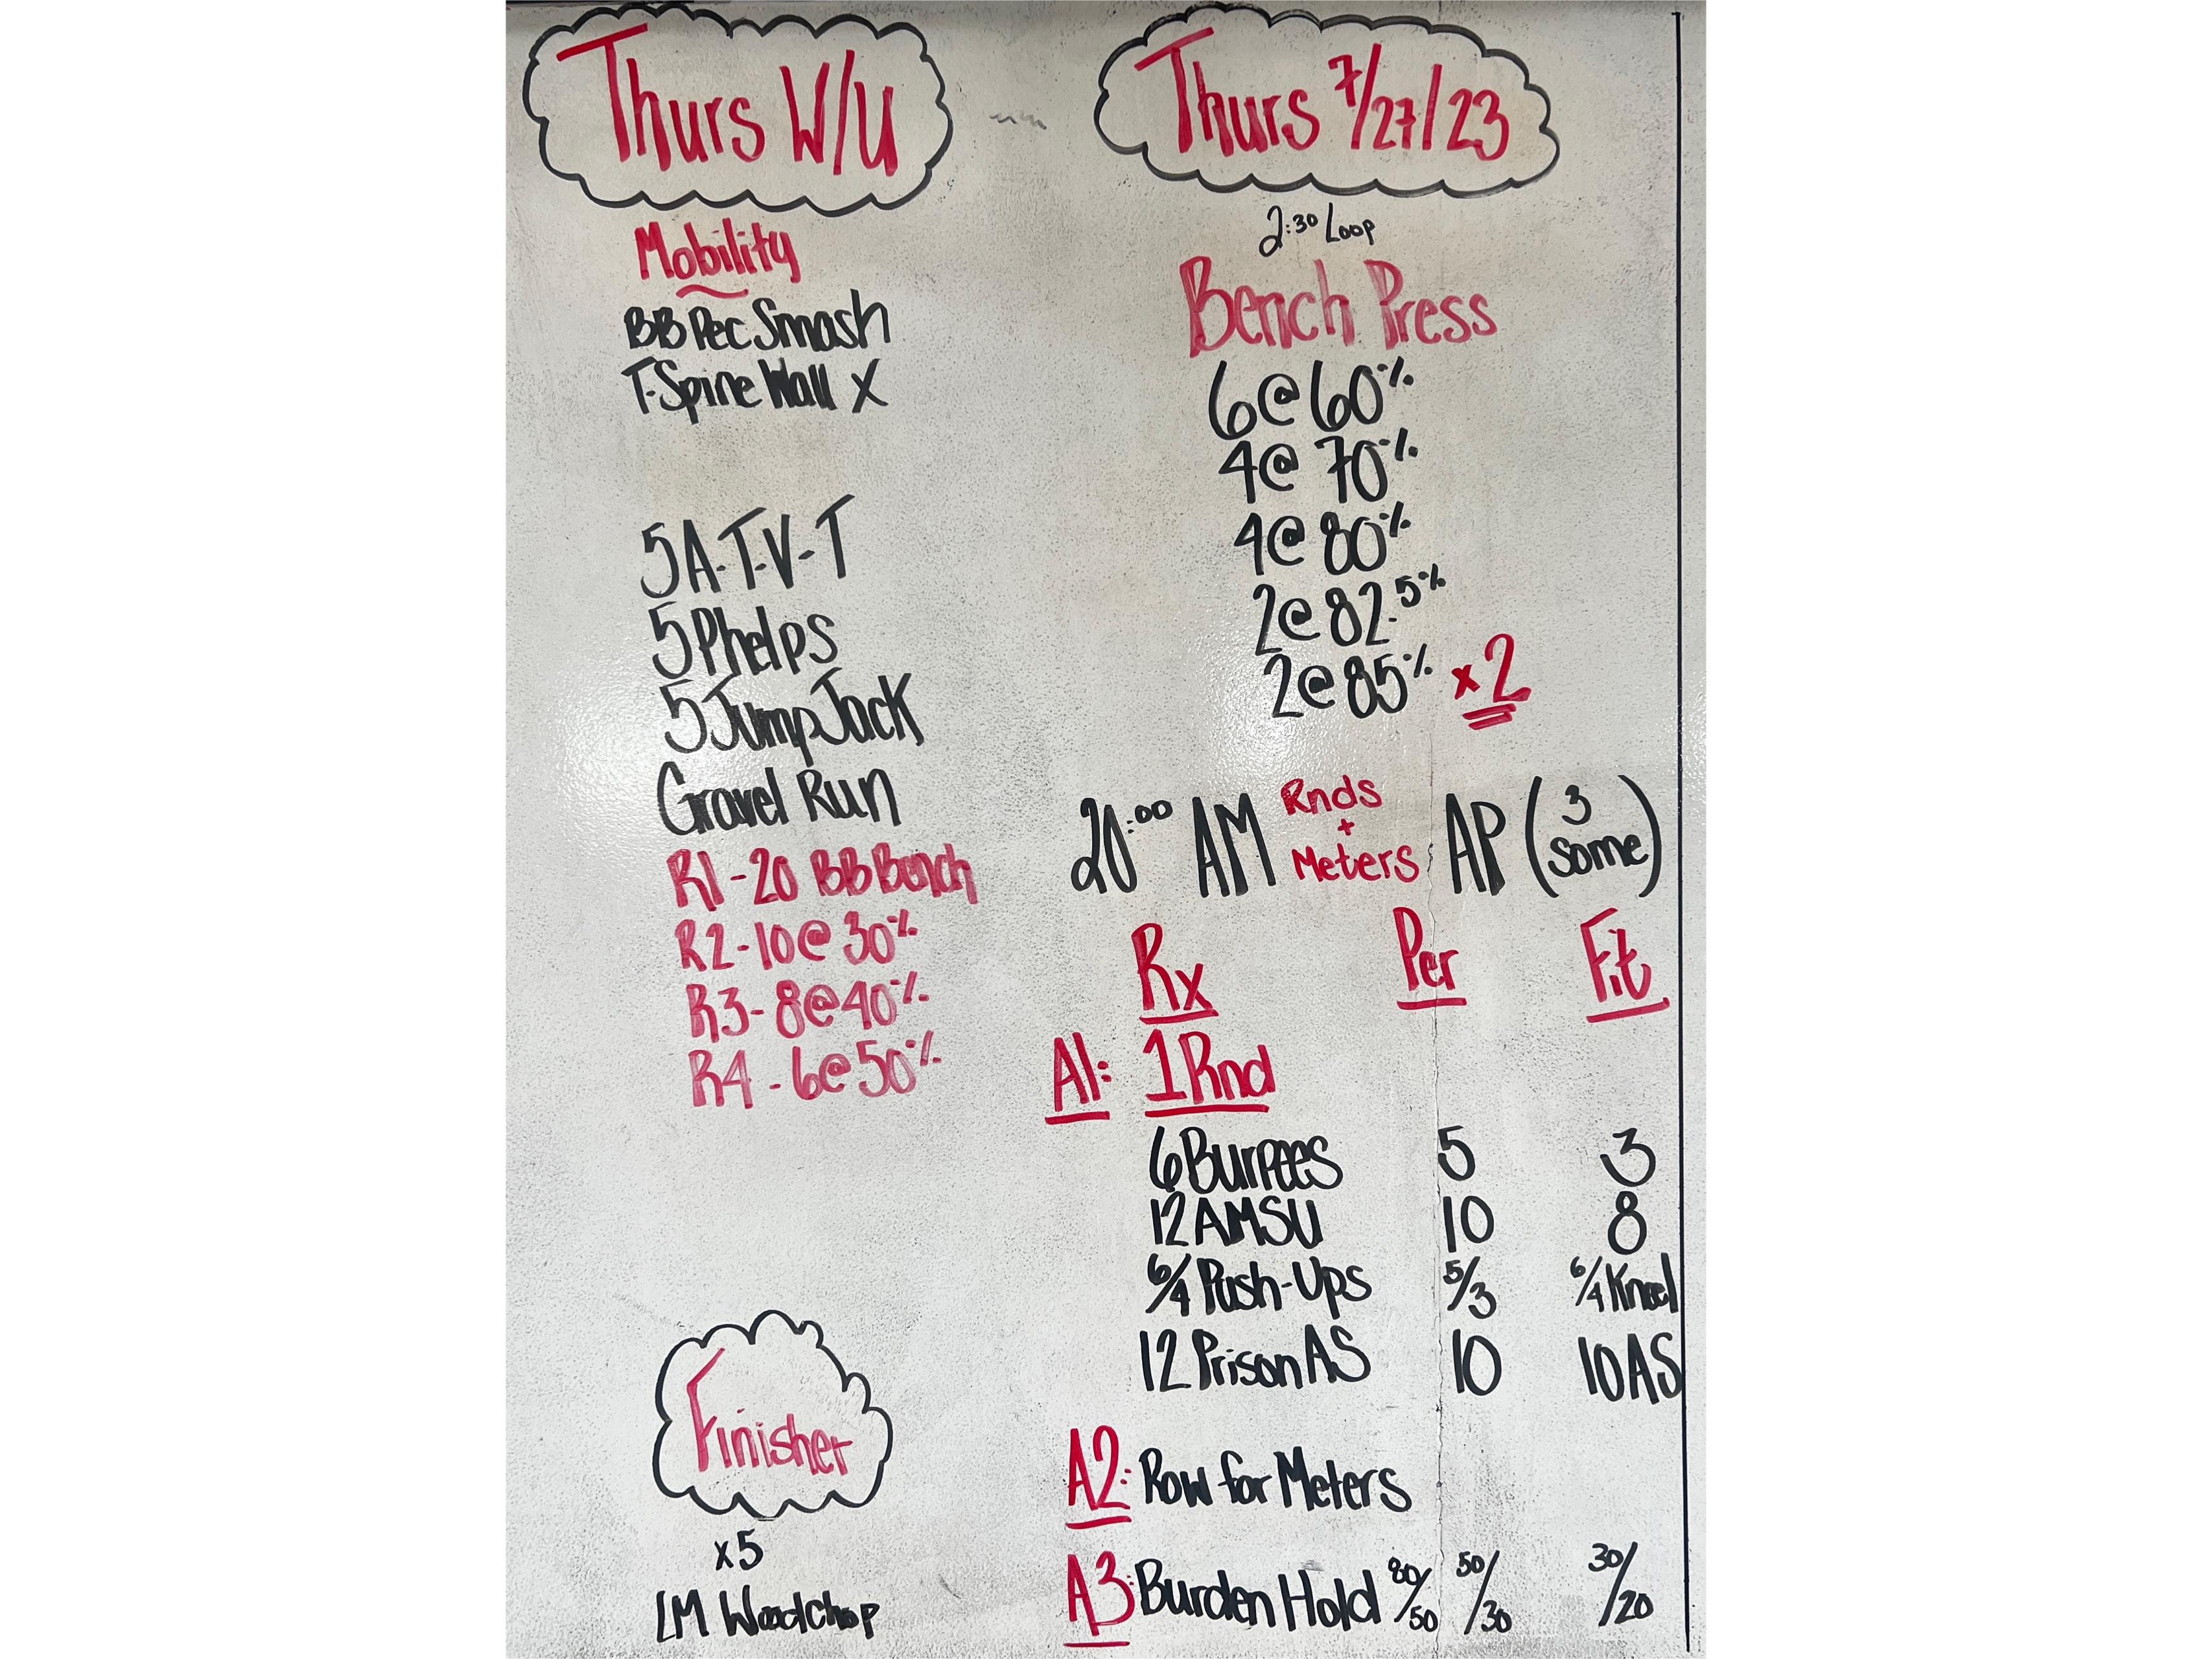 Thurs W/U
Mobility
BB Pec Smash
T-Spine Wall X
5 A-T-V-T
5 Phelps
5 Jump Jack
Gravel Run
R1 - 20 BB Bench
R2 - 10 @ 30%
R3 - 8 @ 40%
R4 - 6 @ 50%
Finisher
x5
LM Woodchop
Thurs 7/27/23
2:30 Loop
Bench Press
6 @ 60%
4 @ 70%
4 @ 80%
2 @ 82.5%
2 @ 85% x2
20:00 AM Rnds + Meters AP (3 some)
Rx Per Fit
A1: 1 Rnd
6 Burpees 5 3
12 AMSU 10 8
6/4 Push-Ups 5/3 6/4 Kneel
12 Prison AS 10 10 AS
A2: Row for Meters
A3: Burden Hold 80/50 50/30 30/20